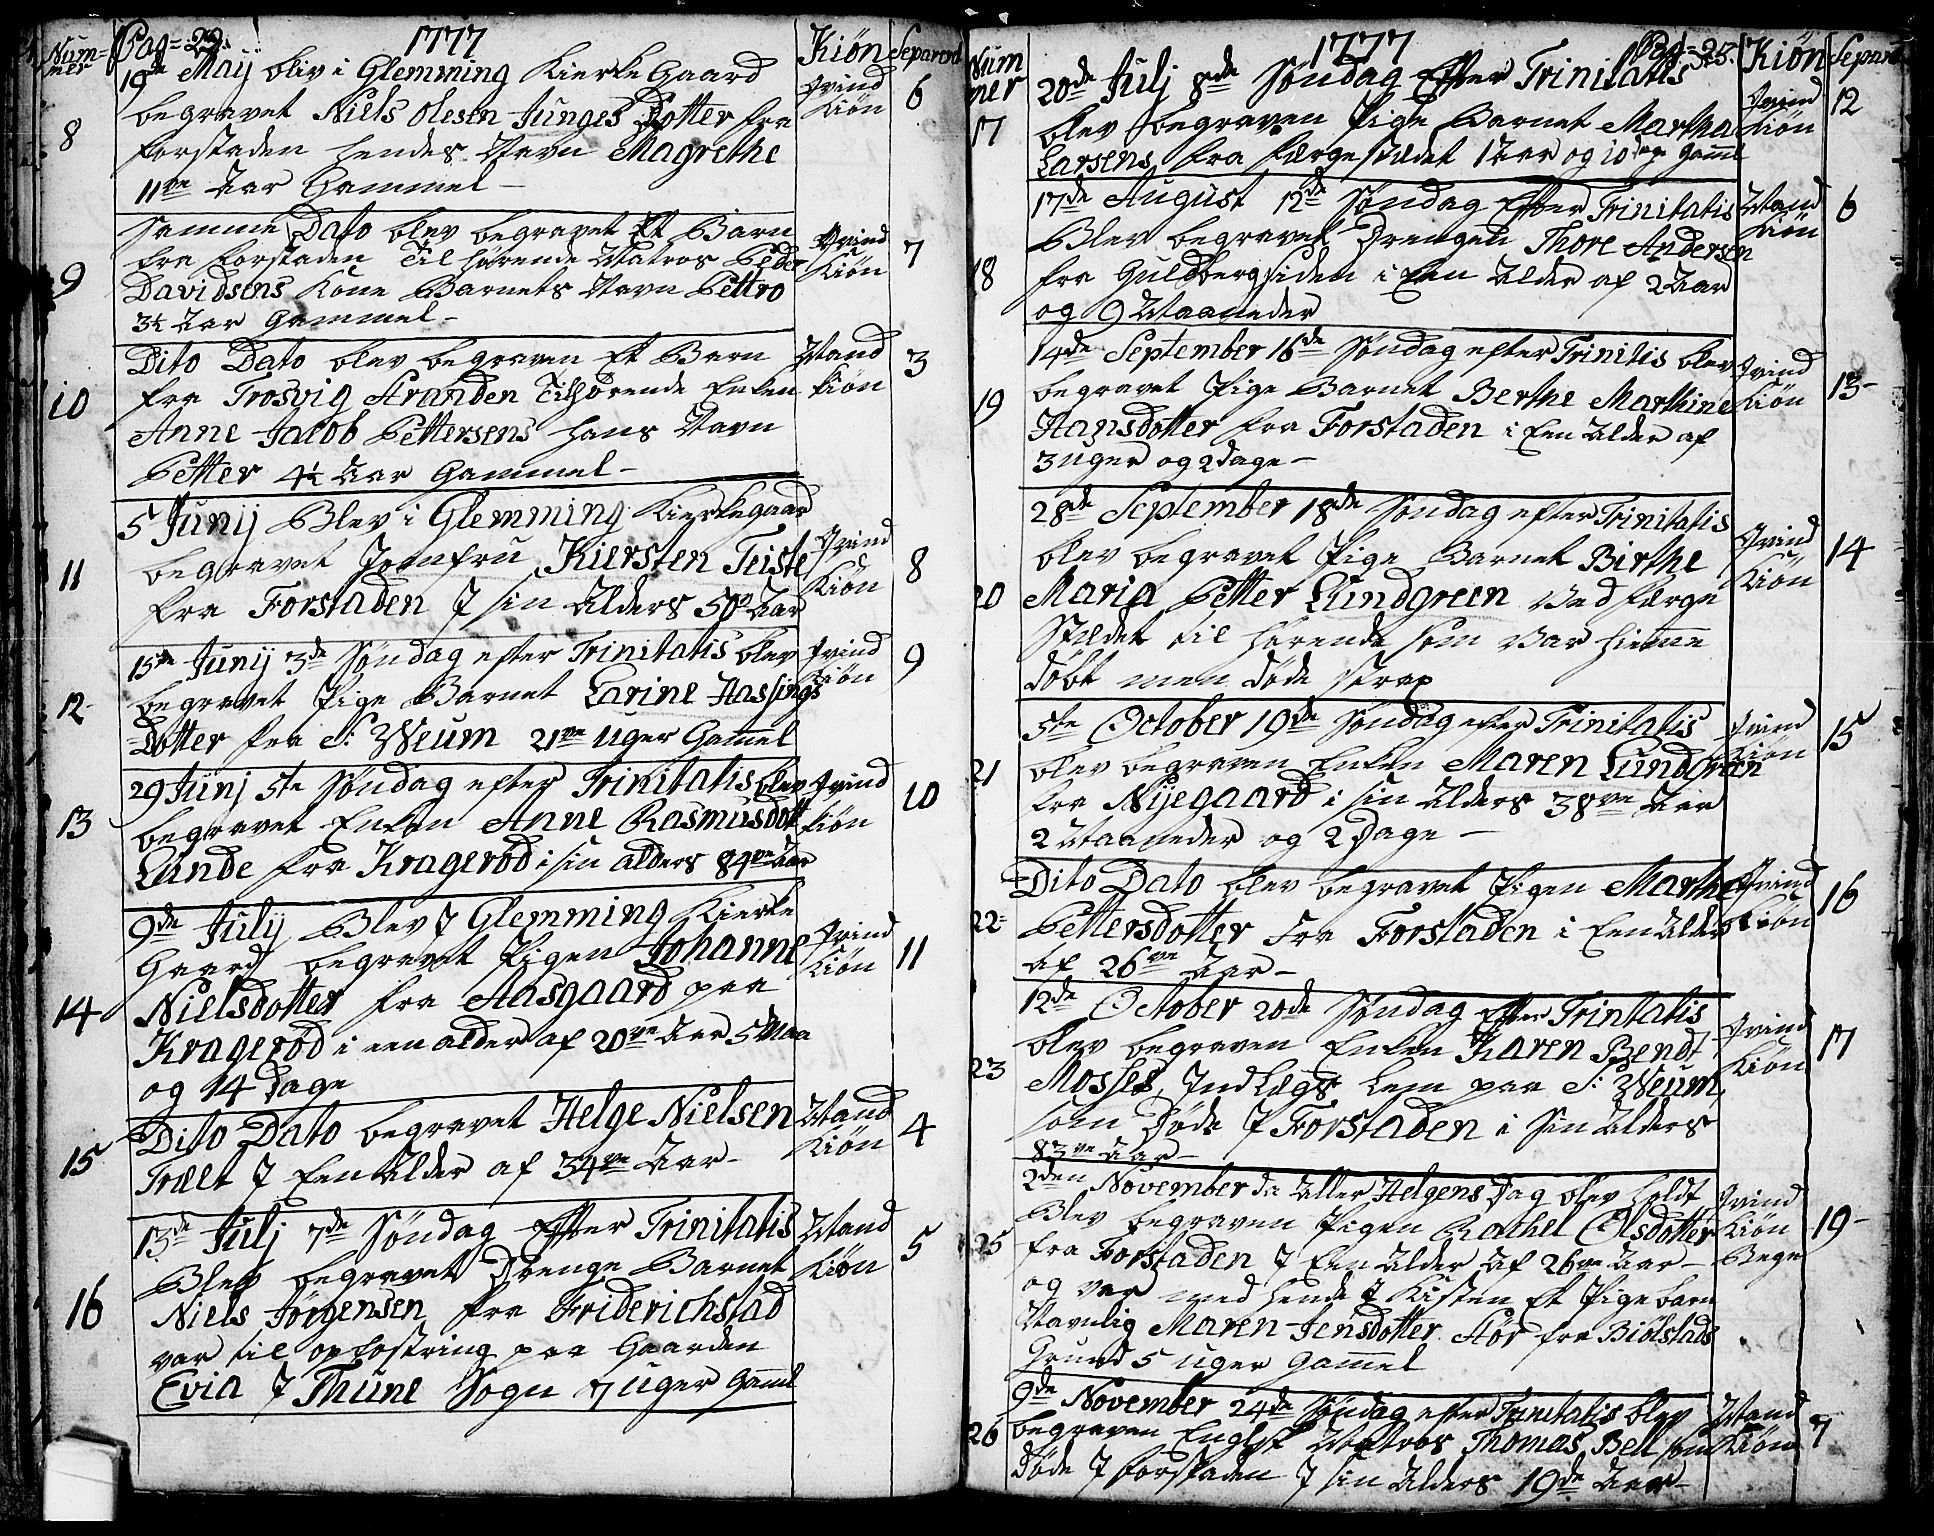 Num=
mer
Pag=22.
1777
Kiön
Separend
19de Maij bliv i Glemming Kierke Gaard
begravet Niels Olesen Junges Dotter fra
forstaden hendes Navn Magrethe
11ve Aar Gammel-
8
Qvind
Kiön
6
Samme Dato blev begravet Et Barn
fra forstaden Til hörende Matros Peder
Davidsens Kone Barnets Navn Pettro
3½ Aar Gammel-
9
Qvind
Kiön
7
Dito Dato blev begraven Et Barn
fra Trosvig Stranden Tilhörende Enken
Anne Jacob Pettersens hans Navn
Petter 4½ Aar Gammel-
10
Mand
Kiön
3
5 Junij Blev i Glemming Kierkegaard
begravet Jomfru Kiersten Teiste
fra Forstaden J sin Alders 50 Aar
11
Qvind
Kiön
8
15de Junij 3de Söndag efter Trinitatis blev
begravet Pige Barnet Larine Hassings
Dotter fra S: Weum 21ve Uger Gamel
12
Qvind
Kiön
9
29 Junj 5te Söndag efter Trinitatis blev
begravet Enken Anne Rasmusdott
Lunde fra Kragerød i sin alders 84ve Aar
13
Qvind
Kiön
10
9de Julij Blev J Glemming Kierke
Gaard begravet Pigen Johanne
Nielsdotter fra Aasgaard paa
Kragerød i een alder af 20ve Aar 5 Maa
og 14 Dage
14
Qvind
Kiön
11
Dito Dato begravet Helge Nielsen
Trælt J Een Alder af 34ve Aar-
15
Mand
Kiön
4
13de Julj 7de Söndag Effter Trinitatis
Blev begravet Drenge Barnet
Niels Jörgensen fra Friderichstad
var til opfostring paa Gaarden
Evia J Thune Sogn 7 Uger Gaml
16
Mand
Kiön
5
Num
mer
1777
Pag=23.
Kiön
Separend
20de Julj 8de Söndag Effter Trinitatis
blev begraven Pige Barnet Martha
Larsens fra færgestedet 1 Aar og 10 dage Gaml
17
Qvind
Kiön
12
17de August 12te Söndag Effter Trinitatis
Blev begravet Drengen Thore Andersen
fra Guldbergsiden i Een Alder af 2 Aar
og 9 Maaneder
18
Mand
Kiön
6
14de September 16de Söndag efter Trinitis blev
begravet Pige Barnet Berthe Marthine
Hansdotter fra Forstaden i Een Alder af
3 Uger og 2 Dage-
19
Qvind
Kiön
13-
28de September 18de Söndag efter Trinitatis
blev begravet Pige Barnet Birthe
Maria Petter Lundgreen Ved færge
Stædet til hörende som Var hieme
döbt men döde strax
20
Qvind
Kiön
14
5te October 19de Söndag efter Trinitatis
blev begraven Enken Maren Lundgrän
fra Nijegaard i sin Alders 38ve Aar
2 Maaneder og 2 Dage-
21
Qvind
Kiön
15
Dito Dato blev begravet Pigen Marthe
Pettersdotter fra Forstaden i Een Alder
af 26ve Aar-
22-
Qvind
Kiön
16
12de October 20de Söndag Effter Trintatis
blev begraven Enken Karen Bendt
Mosses Indlægs lem paa S: Weum
som Döde J Forstaden i Sin Alders
83ve Aar-
23
Qvind
Kiön
17
2den November da Aller Helgens Dag blev holdt
Blev begraven Pigen Rachel Olsdotter
fra Forstaden J Een Alder Af 26ve Aar-
og var med hende J Kisten Et Pige barn
Navnlig Maren Jensdotter Hör fra Biølstads
Grund 5 Uger Gamel
25
Qvind
Kiön
Bege
19-
9de November 24de Söndag efter Trinitatis blev
begraven Englsk Matros Thomas Bell som
döde J forstaden J sin Alders 19de Aar-
26
Mand
Kiön
7